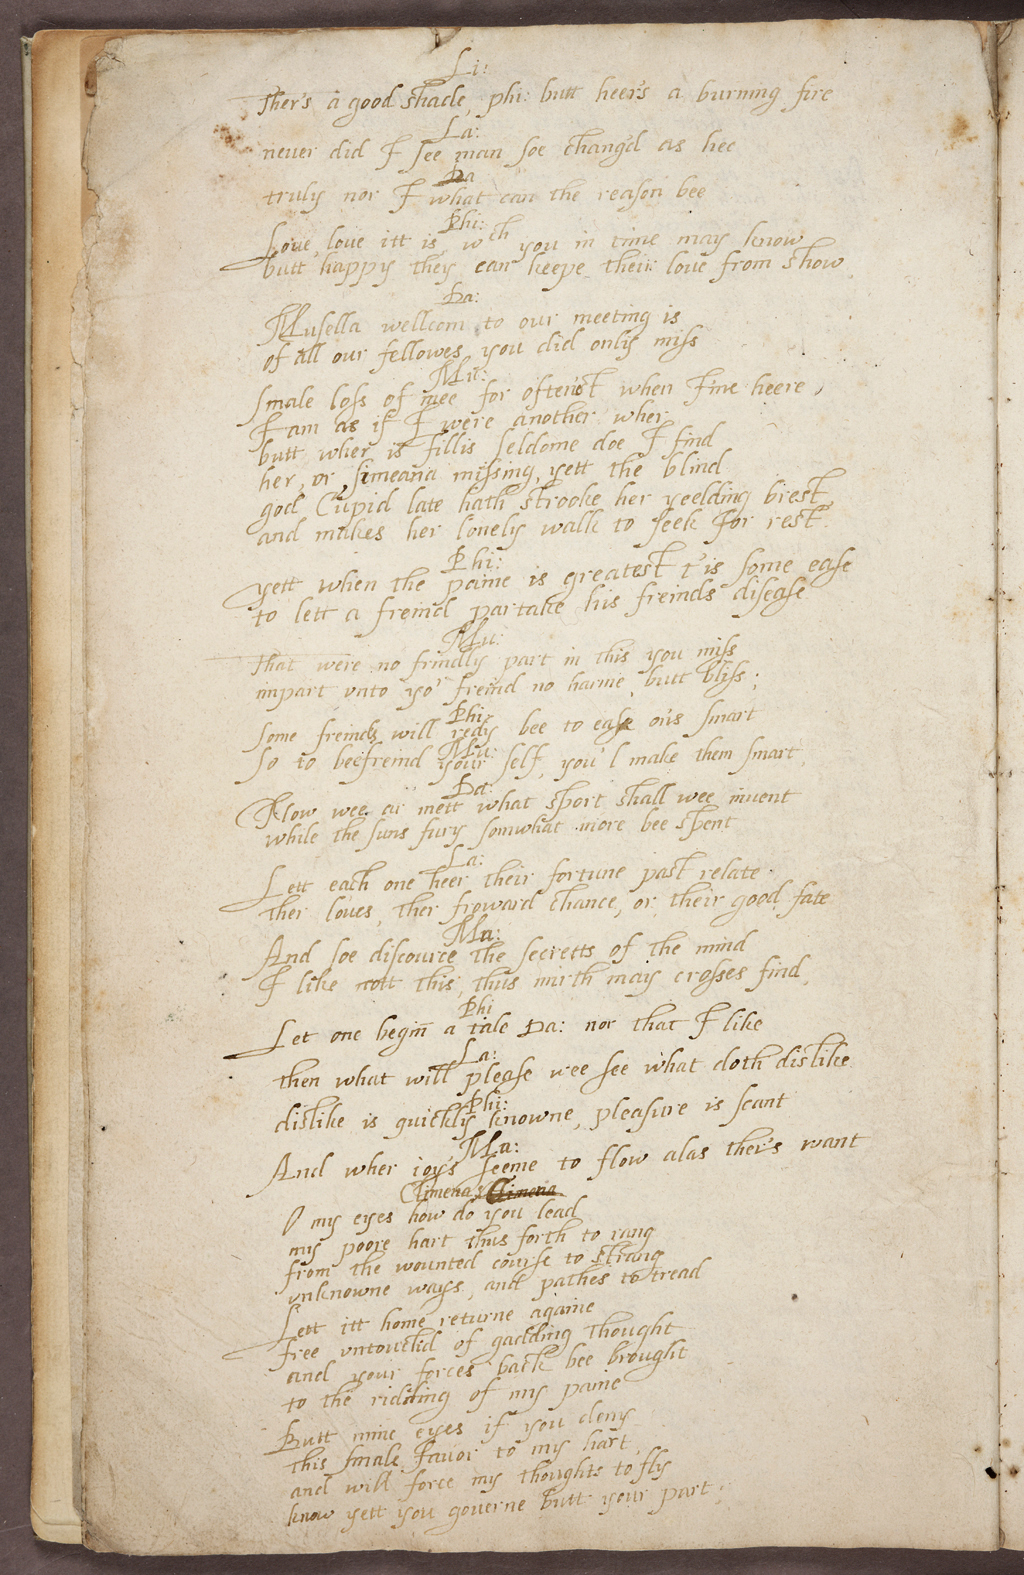 Li:
Ther's a good shade, phi: butt heer's a burning fire
La:
never did I see man soe chang'd as hee
Da
truly nor I what can the reason bee
Phi:
Love, love itt is, wch you in time may know
butt happy they can keepe their love from show
Da:
Musella wellcom to our meeting is
of all our fellowes you did only miss
Mu:
Smale loss of mee for oftenest when I'me heere,
I am as if I were another wher
butt wher is fillis seldome doe I find
her, or simeana missing, yett the blind
god Cupid late hath strooke her yeelding brest
and makes her lonely walk to seek for rest.
Phi:
yett when the paine is greatest t'is some ease
to lett a freind partake his freinds disease
Mu:
That were no frindly part in this you miss
impart vnto yor freind no harme butt bliss;
Phi:
Some freinds will redy bee to ease ons smart
Mu:
So to beefreind your self, you'l make them smart
Da:
Now wee ar mett what sport shall wee invent
while the suns fury somwhat more bee spent
La:
Lett each one heer their fortune past relate
ther loues, ther froward chance, or their good fate
Mu:
And soe discource the secretts of the mind
I like nott this, thus mirth may crosses find
Phi
Let one begin̄ a tale Da: nor that I like
La:
then what will please wee see what doth dislike
Phi:
dislike is quickly knowne, pleasure is scant
Mu:
And wher ioys seeme to flow alas ther's want
Climena's Climena
O my eyes how do you lead
my poore hart thus forth to rang
from the wounted course to strang
vnknowne ways, and pathes to tread
Lett itt home returne againe
free vntouchd of gadding thought
and your forces back bee brought
to the ridding of my paine
Butt mine eyes if you deny
this smale favor to my hart
and will force my thoughts to fly
know yett you governe butt your part;